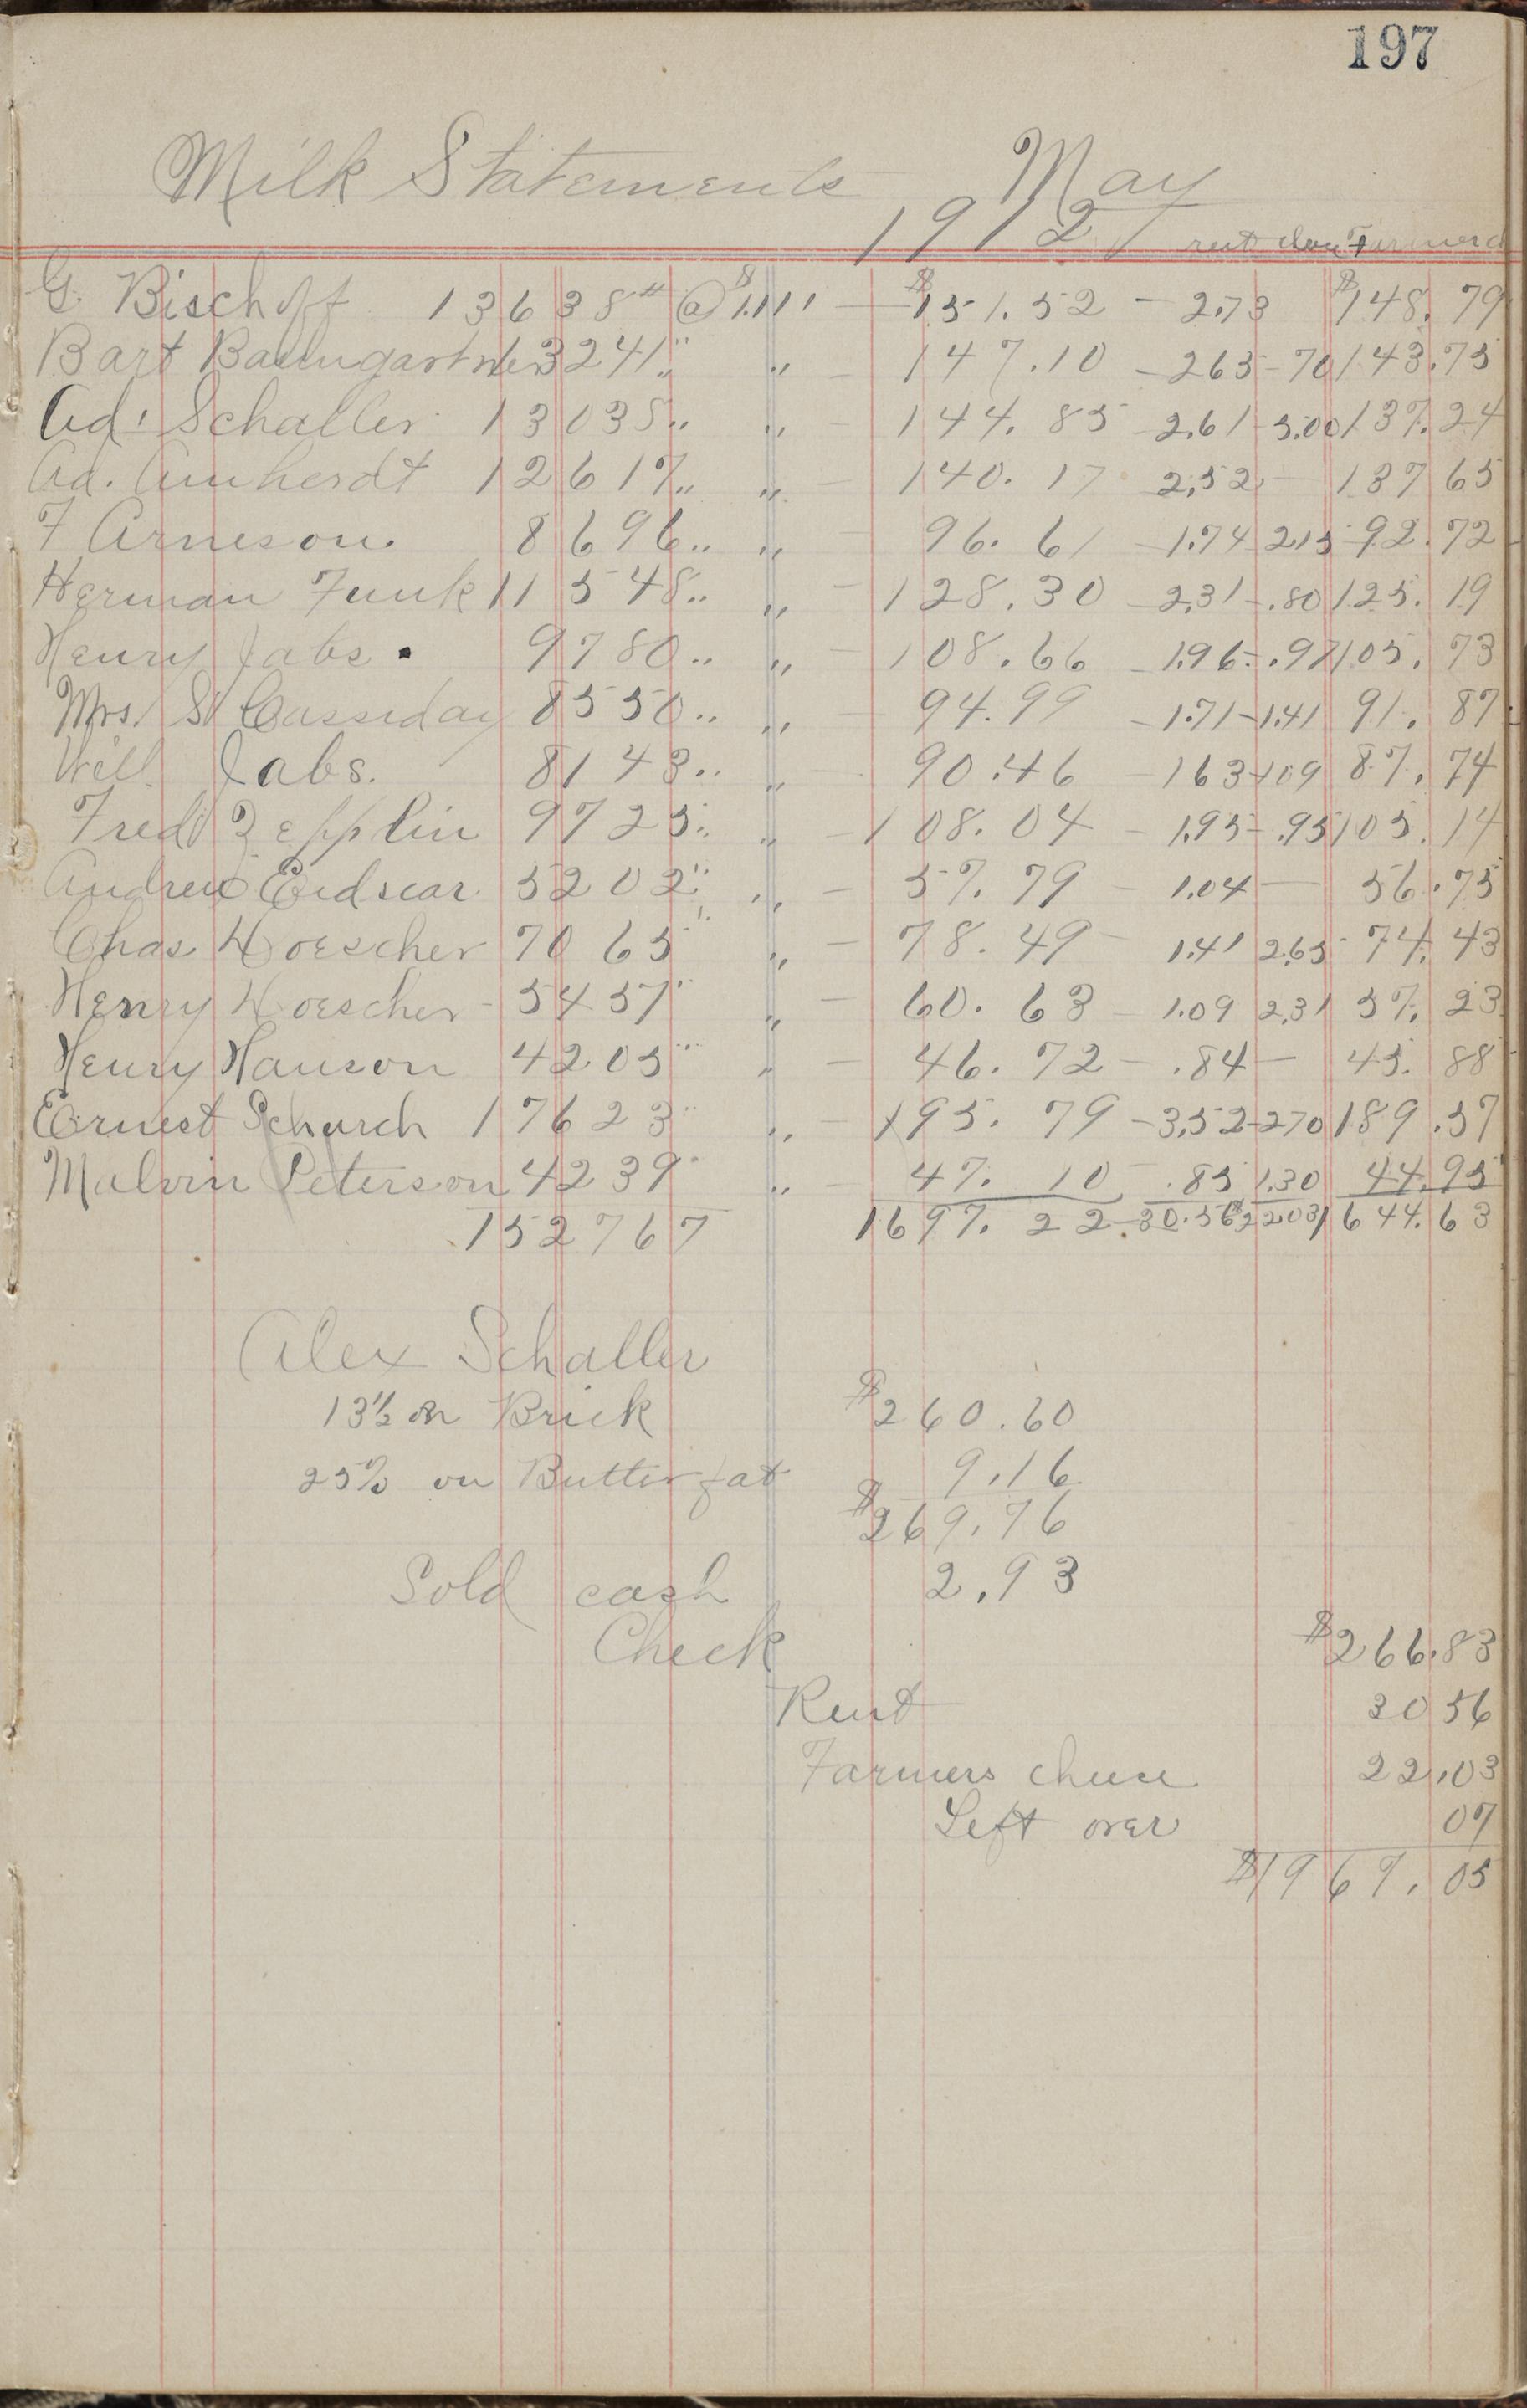 197
Milk Statements May
1912
rent chee Farmers
G. Bischoff 13638# @ $1.111 — $151.52 — 2.73 $148.79
Bart Baumgartner 13241 " " — 147.10 — 265 - 70 143.75
Ad. Schaller 13035 " " — 144.85 — 2.61 - 5.00 137.24
Ad. Amherdt 12617 " " — 140.17 2.52 — 137 65
F Arneson. 8696 " " — 96.61 — 1.74 2.15 - 92.72
Herman Funk 11548 " " — 128.30 — 2.31 - .80 125.19
Henry Jabs. 9780 " " — 108.66 — 1.96 - .97 105.73
Mrs. S Cassiday 8550 " " — 94.99 — 1.71 - 1.41 91.87
Will Jabs. 8143 " " — 90.46 — 163 - 109 87.74
Fred Zepplin 9725 " " — 108.04 — 1.95 - .95 105.14
Andrew Eidscar 5202 " " — 57.79 — 1.04 — 56.75
Chas Woescher 7065 " " — 78.49 — 1.41 2.65 - 74.43
Henry Woescher - 5457 " " — 60.63 — 1.09 2.31 57.23
Henry Hanson 4205 " " — 46.72 — .84 — 45.88
Ernest Schurch 17623 " " — 195.79 — 3.52 - 270 189.57
Malvin Peterson 4239 " " — 47.10 — .85 1.30 44.95
152767 1697.22 30.56 22.03 1644.63
Alex Schaller
13½ on Brick $260.60
25% on Butter fat 9.16
$269.76
Sold cash 2.93
Check $266.83
Rent 3056
Farmers cheese 22.03
Left over 07
$1967.05